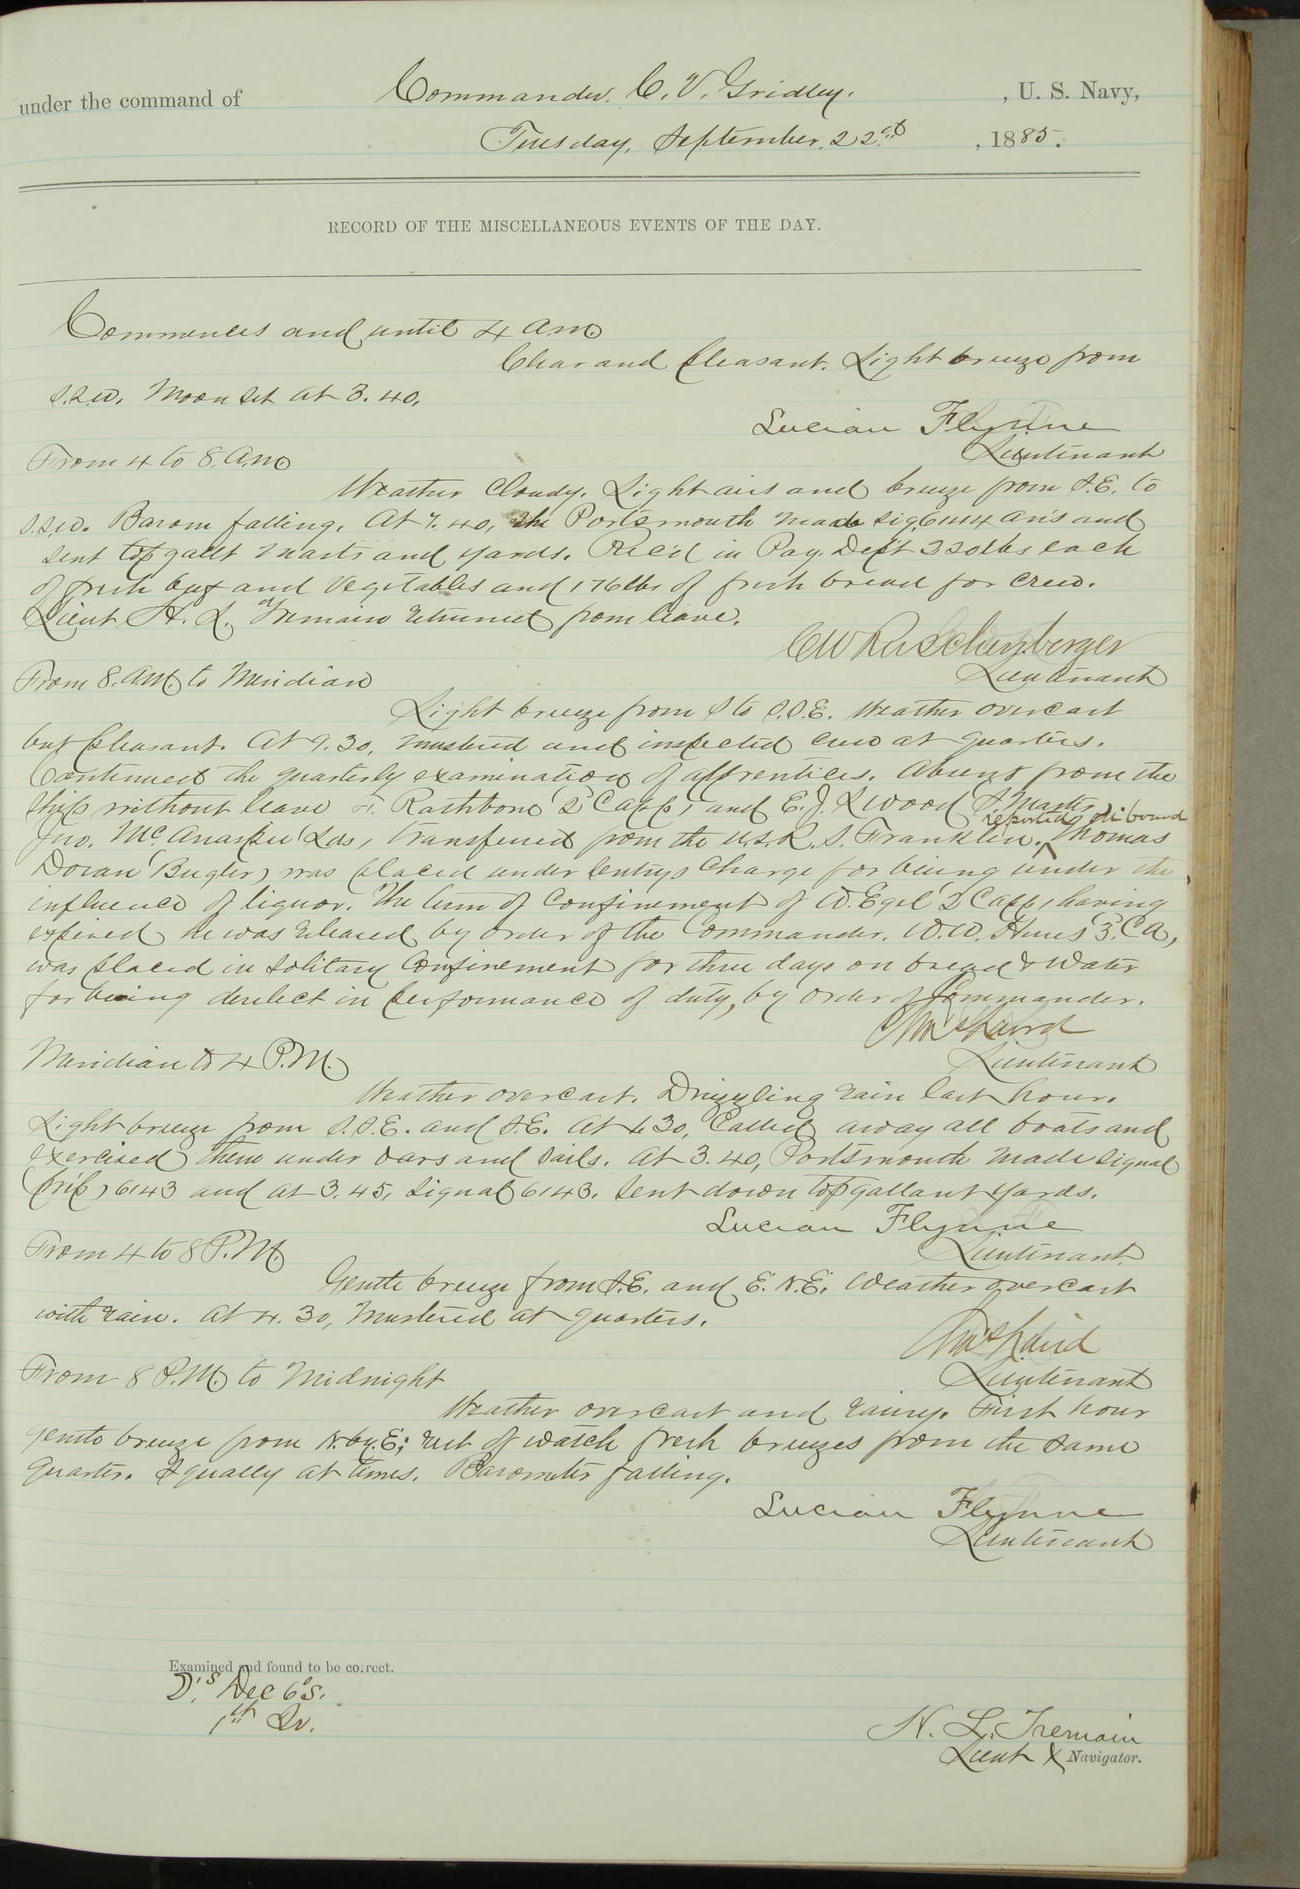 under the command of Commander. C. V. Gridley. , U. S. Navy,
Tuesday, September. 22nd , 1885.
RECORD OF THE MISCELLANEOUS EVENTS OF THE DAY.
Commences and until 4 a.m.
Clear and pleasant. Light breeze from
S.S.W. Moon set at 3.40.
Lucian Flynne
Lieutenant
From 4 to 8. a.m.
Weather cloudy. Light airs and breeze from S.E. to
S.S.W. Barom falling. At 7.40, the Portsmouth made sig. and
sent topgallt masts and yards. Rec'd in Pay. Dep't 320 lbs each
of fresh beef and vegetables and 176 lbs of fresh bread for crew.
Lieut H. L. Tremain returned from leave.
C W Ruschenberger
Lieutenant
From 8. a.m. to Meridian
Light breeze from S to S.S.E. Weather overcast
but pleasant. At 9.30, mustered and inspected crew at quarters.
Continued the quarterly examination of apprentices. Absent from the
ship without leave F. Rathbone 2 C app, and E. J. Lwood
Jno. Mc. Las, transferred from the U.S.R.S. Franklin, reported on board. Thomas
Doran Bugler, was placed under sentrys charge for being under the
influence of liquor. The term of confinement of W. Egel 2 C app, having
expired he was released by order of the Commander. W. W. 3. C A,
was placed in solitary confinement for three days on bread & water
for being derelict in performance of duty, by order of Commander.
Lieutenant
Meridian to 4 P.M.
Weather overcast. Drizzling rain last hour.
Light breeze from S.S.E. and S.E. At 1.30, Called away all boats and
exercised them under oars and sails. At 3.40, Portsmouth made signal
prep, 6143 and at 3.45, signal 6143. Sent down topgallant yards.
Lucian Flynne
Lieutenant.
From 4 to 8 P.M.
Gentle breeze from S.E. and E.N.E. Weather overcast
with rain. At 4.30, mustered at quarters.
Lieutenant
From 8 P.M. to Midnight
Weather overcast and rainy. First hour
gentle breeze from N. by E; rest of watch fresh breezes from the same
quarter. Squally at times. Barometer falling.
Lucian Flynne
Lieutenant
Examined and found to be correct.
N. L. Tremain
Lieut & Navigator.